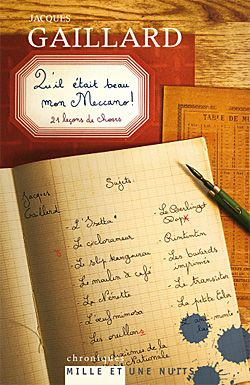 JACQUES
GAILLARD
Qu'il était beau
mon Meccano!
21 leçons de choses
TABLE DE
Jacques
Gaillard
Sujets:
- L'"Isetta"
- Le ciclorameur
- Le slip kangourou
- Le moulin à café
- La Nénette
- L'œuf mimosa
- Les oreillons
- Le Berlingot
- Rintintin
- Les buvards
imprimés
- Le transistor
- La petite laine
- Le
Nationale
chroniques
MILLE ET UNE NUITS